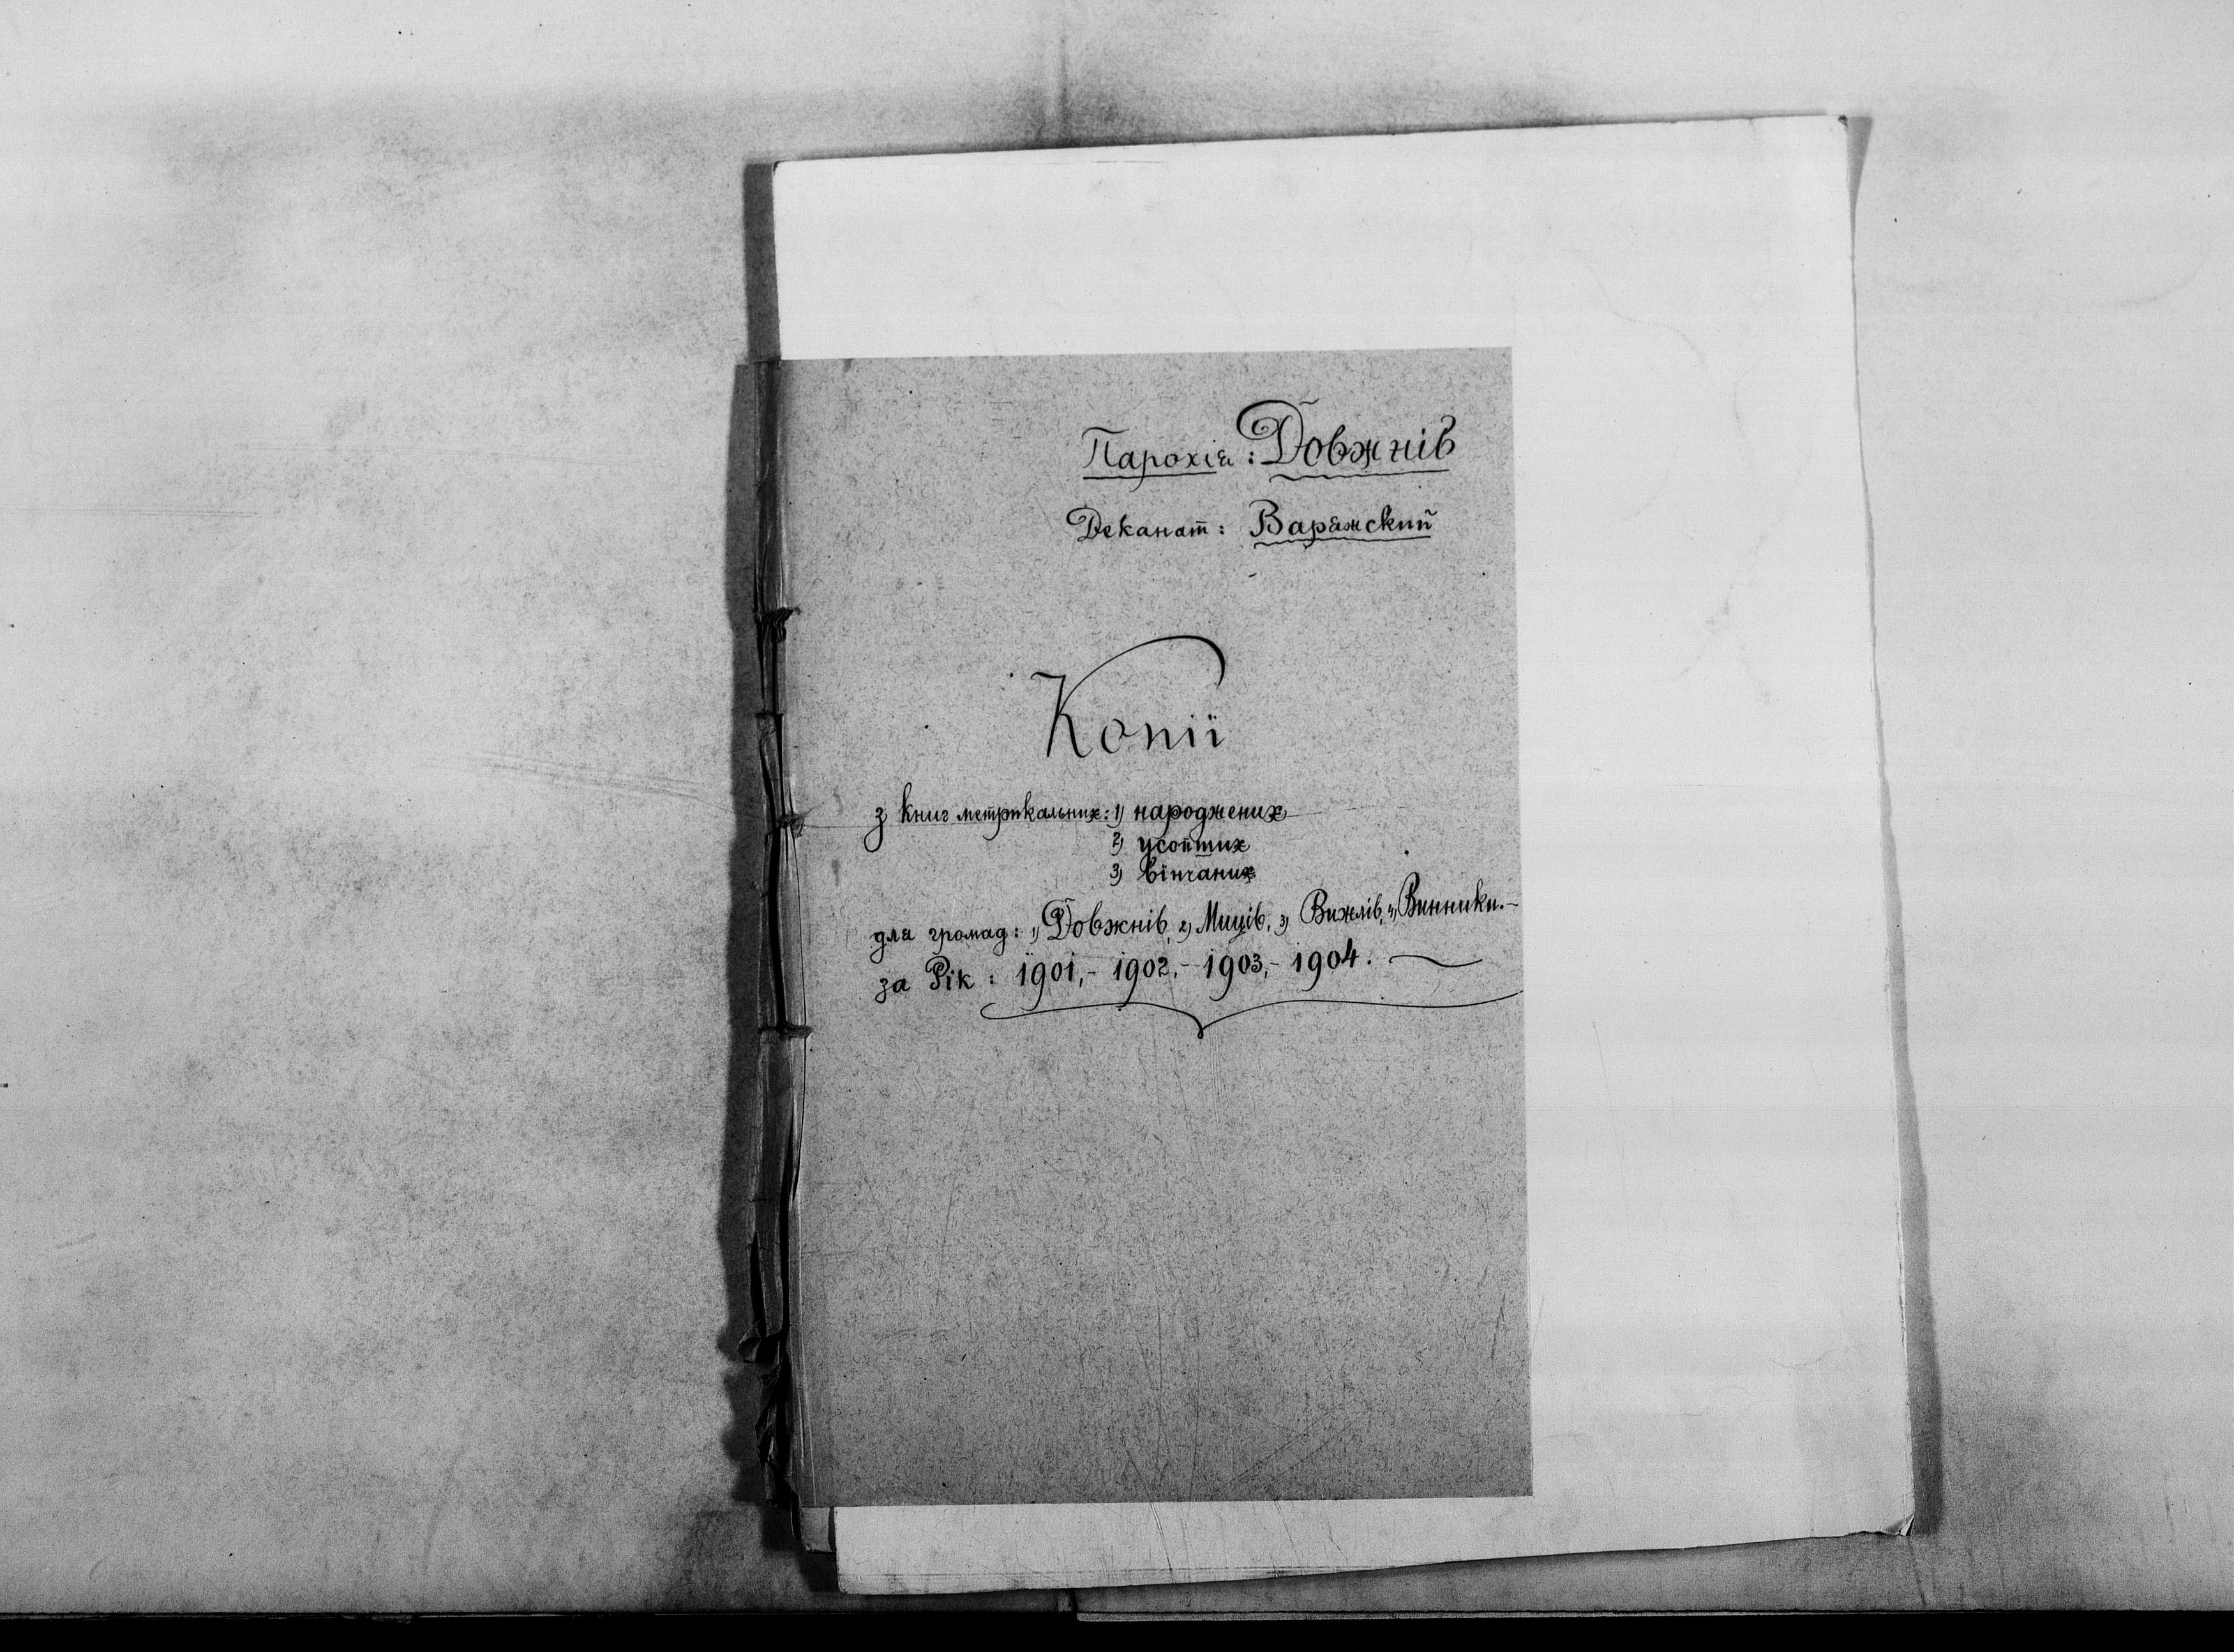 Парохія: Довжнів
Деканат: Варяжский
Копії
з книг метрикальних: 1) народжених
2) усопших
3) вінчаних
для громад: 1) Довжнів, 2) Миців, 3) Вижлів, 4) Винники.—
за Рік: 1901,- 1902,- 1903,- 1904. —